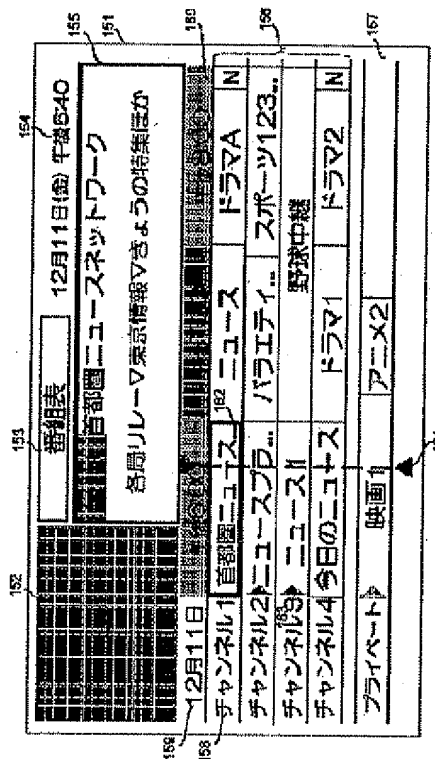 152
153
154
155
151
番組表
12月11日(金) 午後6:40
首都圏ニュースネットワーク
各局リレー▽東京情報▽きょうの特集ほか
159
12月11日
160
162
チャンネル1 首都圏ニュース ニュース ドラマA N
158
チャンネル2 ニュースプラ… バラエティ… スポーツ123…
156
チャンネル3 ニュース11 野球中継
163
チャンネル4 今日のニュース ドラマ1 ドラマ2 N
プライベート 映画1 アニメ2
157